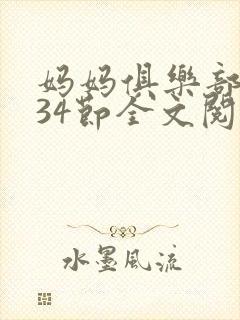 妈妈俱樂部
34节全文阅
水墨风流